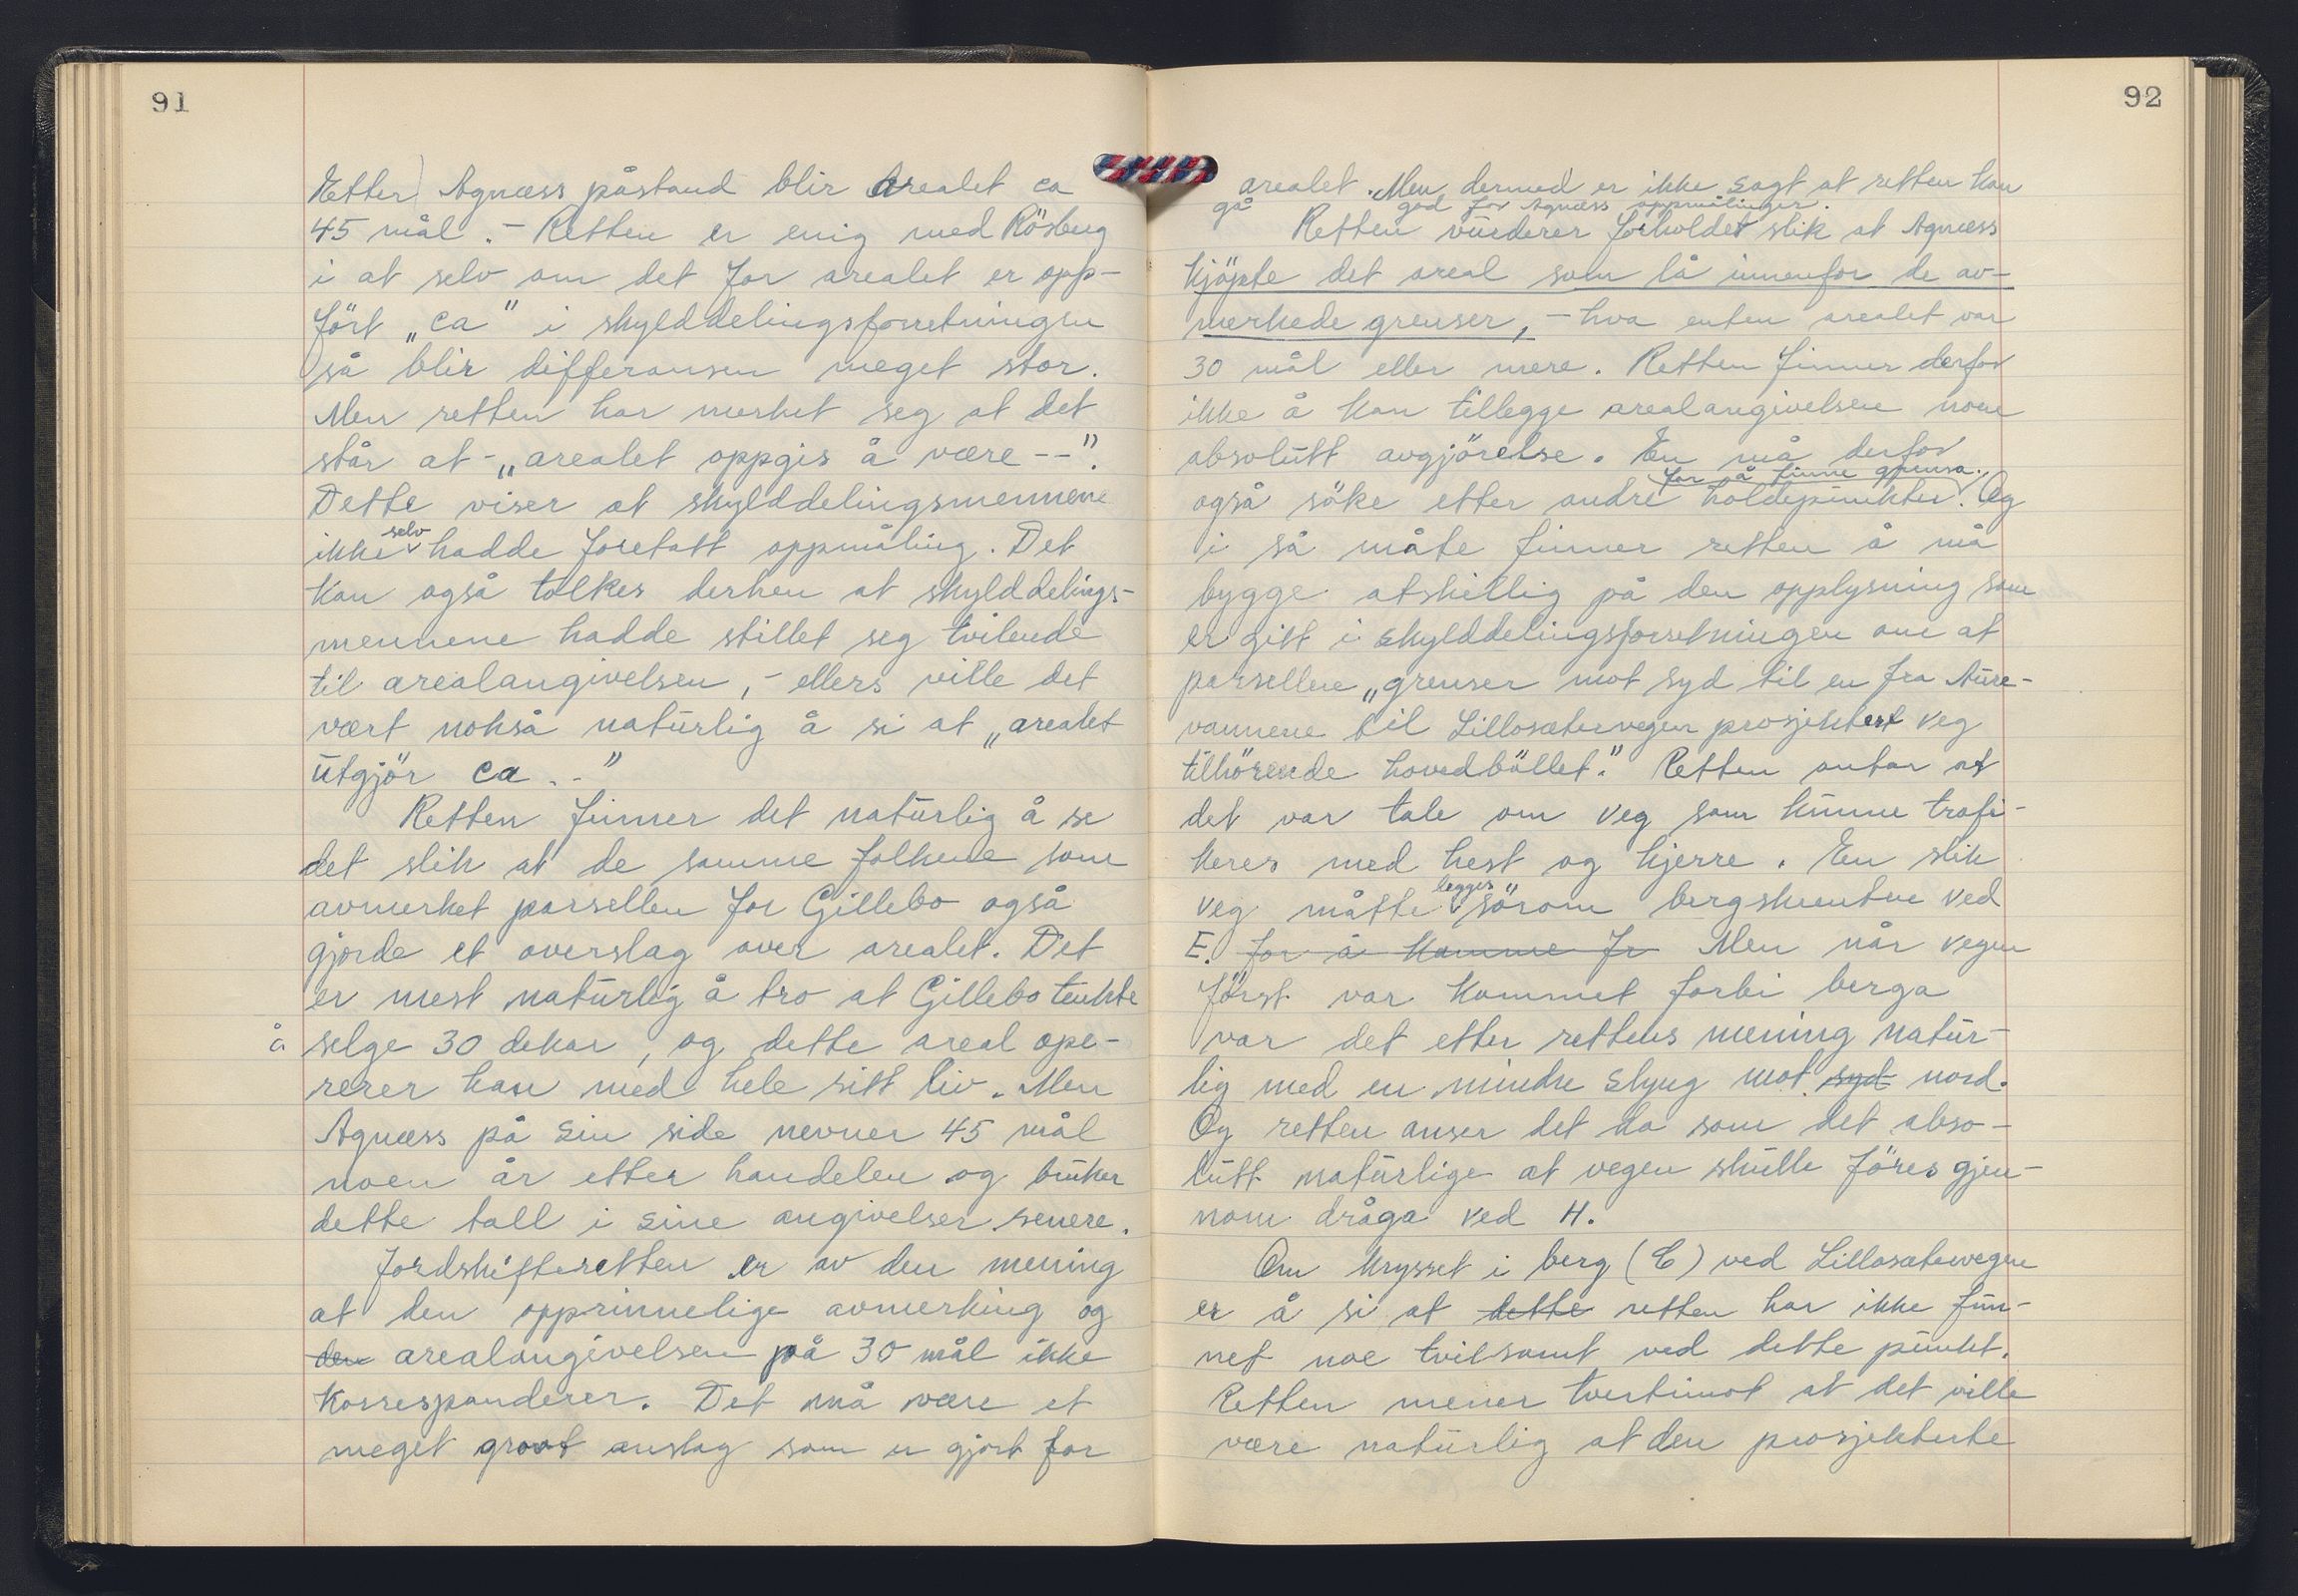 91
Etter Agnæss påstand blir arealet ca
45 mål. - Retten er enig med Rösberg
i at selv om det for arealet er opp-
fört „ca" i skylddelingsforretningen
så blir differansen meget stor.
Men retten har merket seg at det
står at - „arealet oppgis å være --".
Dette viser at skylddelingsmennene
ikke selv hadde foretatt oppmåling. Det
kan også tolkes derhen at skylddelings-
mennene hadde stillet seg tvilende
til arealangivelsen, - ellers ville det
vært nokså naturlig å si at „arealet
utgjör ca --"
Retten finner det naturlig å se
det slik at de samme folkene som
avmerket parsellen for Gillebo også
gjorde et overslag over arealet. Det
er mest naturlig å tro at Gillebo tenkte
å selge 30 dekar, og dette areal ope-
rerer han med hele sitt liv. Men
Agnæss på sin side nevner 45 mål
noen år etter handelen og bruker
dette tall i sine angivelser senere.
Jordskifteretten er av den mening
at den opprinnelige avmerking og
den arealangivelsen på 30 mål ikke
korresponderer. Det må være et
meget grovt anslag som er gjort for
92
arealet. Men dermed er ikke sagt at retten kan
gå god for Agnæss oppmålinger.
Retten vurderer forholdet slik at Agnæss
kjöpte det areal som lå innenfor de av-
merkede grenser, - hva enten arealet var
30 mål eller mere. Retten finner derfor
ikke å kan tillegge arealangivelsen noen
absolutt avgjörelse. En må derfor
også söke etter andre holdepunkter for å finne grensa. Og
i så måte finner retten å må
bygge atskillig på den opplysning som
er gitt i skylddelingsforretningen om at
parsellene „grenser mot syd til en fra Aure-
vannene til Lillosætervegen prosjektert veg
tilhörende hovedböllet." Retten antar at
det var tale om veg som kunne trafi-
keres med hest og kjerre. En slik
veg måtte legges sörom bergskrentene ved
E. for å komme fr Men når vegen
först var kommet forbi berga
var det etter rettens mening natur-
lig med en mindre slyng mot syd nord.
Og retten anser det da som det abso-
lutt naturlige at vegen skulle föres gjen-
nom dråga ved H.
Om krysset i berg (C) ved Lillosætervegen
er å si at dette retten har ikke fun-
net noe tvilsomt ved dette punkt.
Retten mener tvertimot at det ville
være naturlig at den prosjekterte